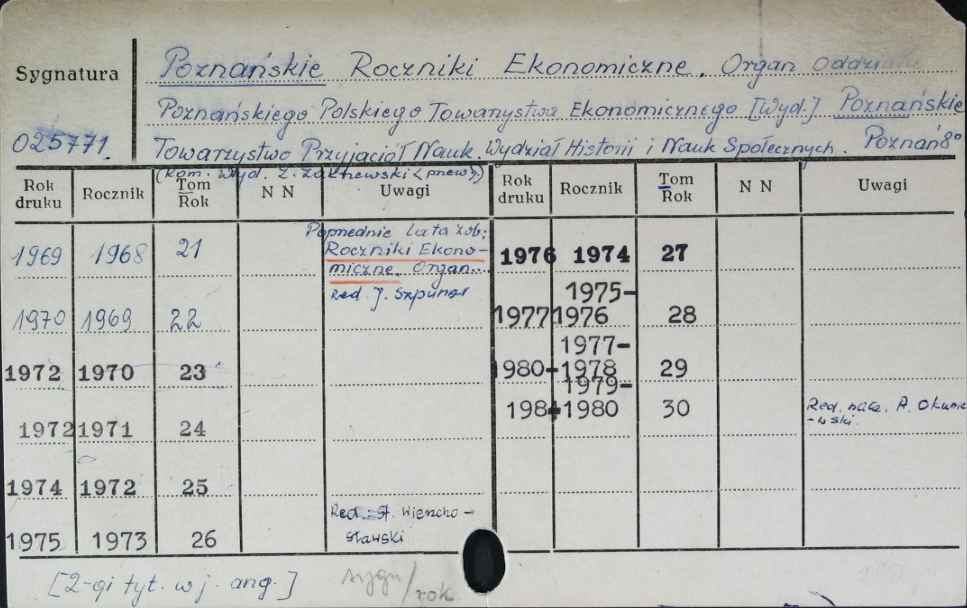 Sygnatura
Poznańskie Roczniki Ekonomiczne. Organ Oddziału
Poznańskiego Polskiego Towarzystwa Ekonomicznego [Wyd.] Poznańskie
025771.
Towarzystwo Przyjaciół Nauk. Wydział Historii i Nauk Społecznych. Poznań 8°
(Kom. Wyd. Z. Zakrzewski <przew>)
Rok druku Rocznik Tom Rok N N Uwagi Rok druku Rocznik Tom Rok N N Uwagi
Poprzednie lata zob:
1969 1968 21 Roczniki Ekono- 1976 1974 27
miczne. Organ...
Red J. Szpunar
1975-
1970 1969 22 1977 1976 28
1977-
1972 1970 23 1980- 1978 29
1979-
1972 1971 24 1984 1980 30 Red. nacz. A. Okunie
-wski
1974 1972 25
Red. St. Wierzcho-
1975 1973 26 sławski
[2-gi tyt. w j. ang.] sygn/rok